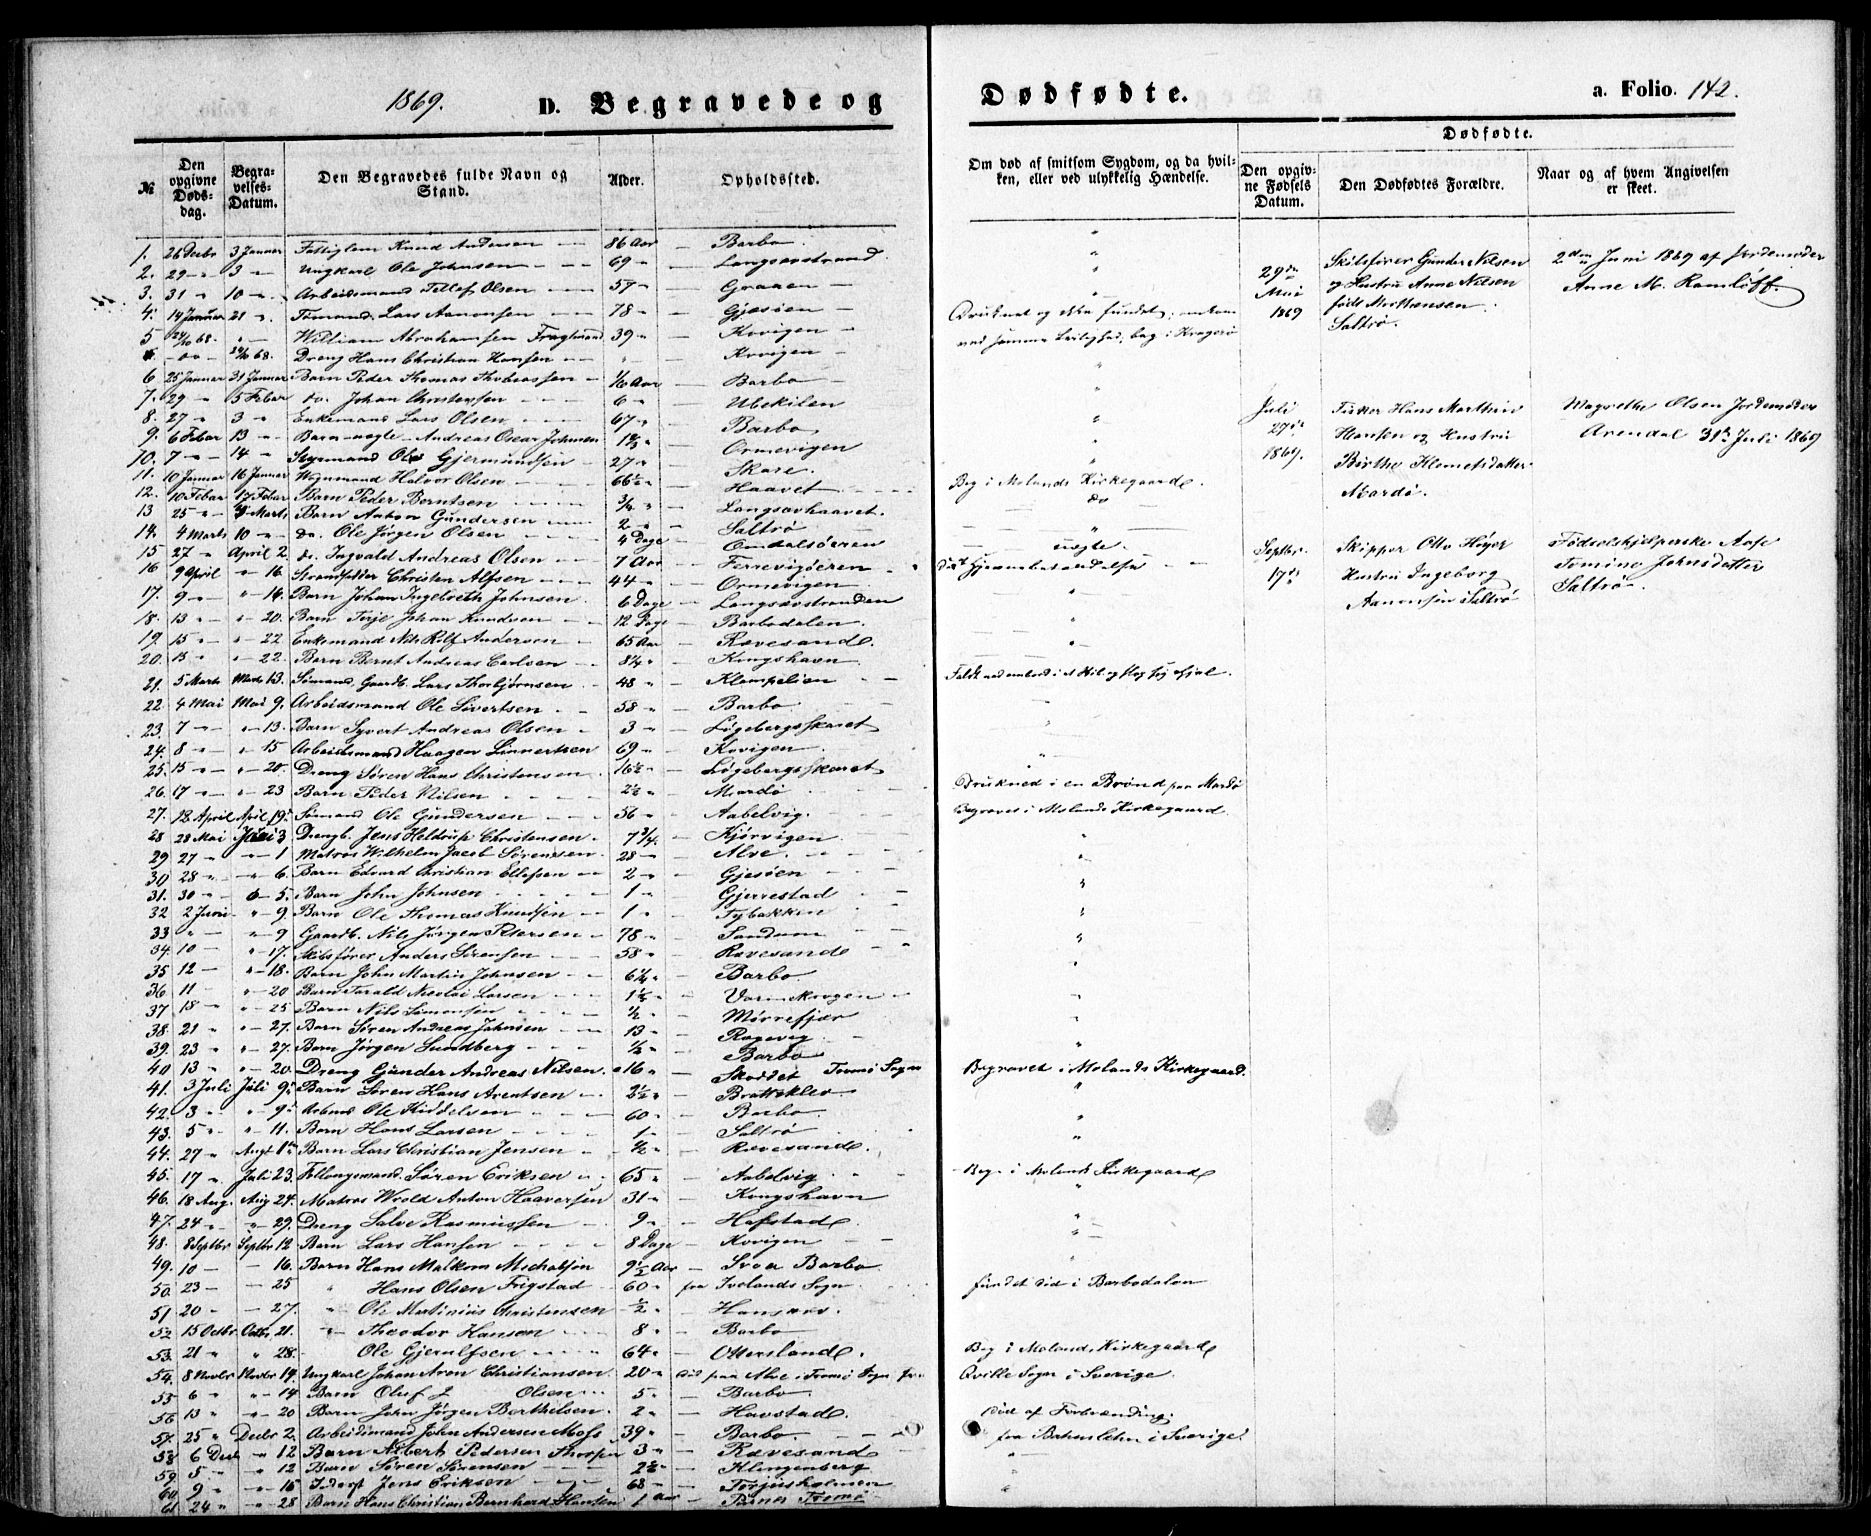 1869. D. Begravede og Dødfødte. a. Folio. 142.
№ | Den opgivne Dødsdag. | Begravelses-Datum. | Den Begravedes fulde Navn og Stand. | Alder. | Opholdssted. | Om død af smitsom Sygdom, og da hvilken, eller ved ulykkelig Hændelse. | Dødfødte. Den opgivne Fødsels Datum. | Den Dødfødtes Forældre. | Naar og af hvem Angivelsen er skeet.
1. 26 Decbr 3 Januar Fattiglem Knud Andersen 86 Aar Barbo
2. 29 " 3 " Ungkarl Ole Johnsen 69 " Langsævstrand
3. 31 " 10 " Arbeidsmand Tellef Olsen 57 " Graaen
4. 14 Januar 21 " Tømmand Lars Aanonsen 78 " Gjesøen
5 24/10 68. " William Abrahamsen 39 " Kovigen
" do 24/10 68. Dreng Hans Christian Hansen " Kovigen
6. 25 Januar 31 Januar Barn Peder Thomas Thobiassen 1/6 Aar Barbo
7. 29 " 5 Febar do. Johan Christensen 6 " Ubekilen
8. 27 " 3 " Enkemand Lars Olsen 67 " Barbo
9. 6 Febar 13 " Barn uægte Andreas Oscar Johnsen Ormevigen
10. 7 " 14 " Styrmand Ole Gjermundsen 27 " Skare.
11. 10 Januar 16 Januar Vognmand Halvor Olsen 66½ " Haavet Beg i Molands Kirkegaard
12. 10 Febar 17 Febar Barn Peder Berntsen ¾ " Langsævhaavet do
13 25 " Marts Barn Anton Gundersen 2 " Saltrø
14. 4 Marts 10 " do. Ole Jørgen Olsen 4 Dage Omdalsøeren uægte
15 27 " April 2. do. Ingvald Andreas Olsen 7 Aar Ferrevigøeren
16 9 April " 16. Strandsidder Christen Alfsen 44 " Ormevigen
17. 9 " " 16. Barn Johan Ingebreth Johnsen 6 Dage Langsævstranden
18. 13 " " 20. Barn Terje Johan Knudsen 12 Dage Barbodalen
19. 15 " " 22 Enkemand Nils Rolf Andersen 65 Aar Rævesand
20. 15 " " 22. Barn Bernt Andreas Carlsen 8¼ " Kongshavn
21. 5 Marts Marts 13. Sømand, Gaardb. Lars Thorbjørnsen 48 " Klempelien
22. 4 Mai Mai 9. Arbeidsmand Ole Sivertsen 58 " Barbo
23. 7 " " 13. Barn Syvert Andreas Olsen 3 " Løgebergsskaret
24. 8 " " 15 Arbeidsmand Haagen Linnertsen 69 " Kovigen
25. 15 " " 20. Dreng Søren Hans Christensen 16½ " Løgebergsskaret
26. 17 " " 23 Barn Peder Nilsen 2½ " Mærdø Druknet i en Brønd paa Mærdø
27. 12 April April 19. Sømand Ole Gundersen 56 " Aabelvig Begraves i Molands Kirkegaard
28 28 Mai Juni 3 Drengb. Jens Heldrup Christensen 7¾. Kjørvigen
29 27 " " 1 Matros Wilhelm Jacob Sørensen 28 " Alve
30 28 " " 6. Barn Edvard Christian Ellefsen 2 " Gjesøen
31. 30 " 6 5. Barn John Johnsen 1 " Gjerrestad
32 2 Juni " 9. Barn Ole Thomas Knudsen 1 " Tybakken
33 " " 9 Gaardb. Nils Jørgen Petersen 78 " Sandum
34. 10 " 17. Skibsfører Anders Sørensen 58 " Rævesand
35 12 " 18. Barn John Martin Johnsen 6¼ " Barbo
36 11 " 20 Barn Tarald Nicolai Larsen 1½ "
37 18 " " 25 Barn Nils Simonsen ½ " Mørrefjær
38. 21 " " 27. Barn Søren Andreas Johnsen 13 " Rægevig
39. 23 " " 27. Barn Jørgen Sundberg ½ " Barbo
40 13 " " 20. Dreng Gunder Andreas Nilsen 16 " Skottet Tromø Sogn Begravet i Molands Kirkegaard
41. 3 Juli Juli 9. Barn Søren Hans Arentsen 2½ " Brattekleiv
42. 3 " " 9. Arbmd Ole Kiddelsen 60 " Barbo
43. 5 " " 11. Barn Hans Larsen 1 " Saltrø
44. 27 " Augt 1 Barn Lars Christian Jensen ½ " Rævesand
45. 17 " Juli 23. Søren Eriksen 65 " Aabelvig Beg i Molands Kirkegaard
46. 18 Aug. Aug 24. Matros Wrold Anton Haaversen 31 " Kongshavn
47. 24 " " 29. Dreng Salve Rasmussen 9 " Hafstad
48. 8 Septbr Septbr 12 Barn Lars Hansen 8 Dage Kovigen
49. 10 16. Barn Hans Malkom Michalsen 9½ Aar Barbo
50. 23 25 " Hans Olsen Frigstad 60 " fra Ivelands Sogn fundet død i Barbodalen
51 20 27. " Ole Martinius Christensen ½ "
52 15 Octbr Octbr 21. " Theodor Hansen 8 " Barbo
53. 21 " " 28. Ole Gjerulfsen 64 " Ottersland Beg i Molands Kirkegaard
54. 8 Novbr Novbr 14. Ungkarl Johan Aron Christiansen 20 " Død paa Alve i Tromø Sogn fra Qville Sogn i Sverige
55 6 " " 14 Barn Oluf J Olsen 5 " Barbo
56 13 " " 20 Barn John Jørgen Berthelsen 2 " Havstad død af Forbrænding
57. 25 " Decbr 2. Arbeidsmand John Andersen Moss 39 " Barbo fra Bahuslehn i Sverige
58 6 Decb " 12 Barn Albert Pedersen 3 " Rævesand
59 5 " " 12 Barn Søren Sørensen 2½ " Klingenberg
60 9 " " 15 Inderst Jens Eriksen 68 " Torjusholmen
61 24 " " 28 Barn Hans Christian Bernhard Hansen 1 Aar Tromø
29de Mai 1869 Skibsfører Gunder Nilsen og Hustru Anne Nilsen født Mortensen. Saltrø 2den Juni 1869 af Jordemoder Anne M. Ramløff
Juli 27de 1869. Fisker Hans Marthin Hansen og Hustru Birthe Klometsdatter Mærdø Magrethe Olsen Jordemoder Arendal 31te Juli 1869
Septbr. 17de Skipper Otto Høyer Hustru Ingeborg Aanonsen Saltrø Fødselshjelperske Aase Tomine Johnsdatter Saltrø